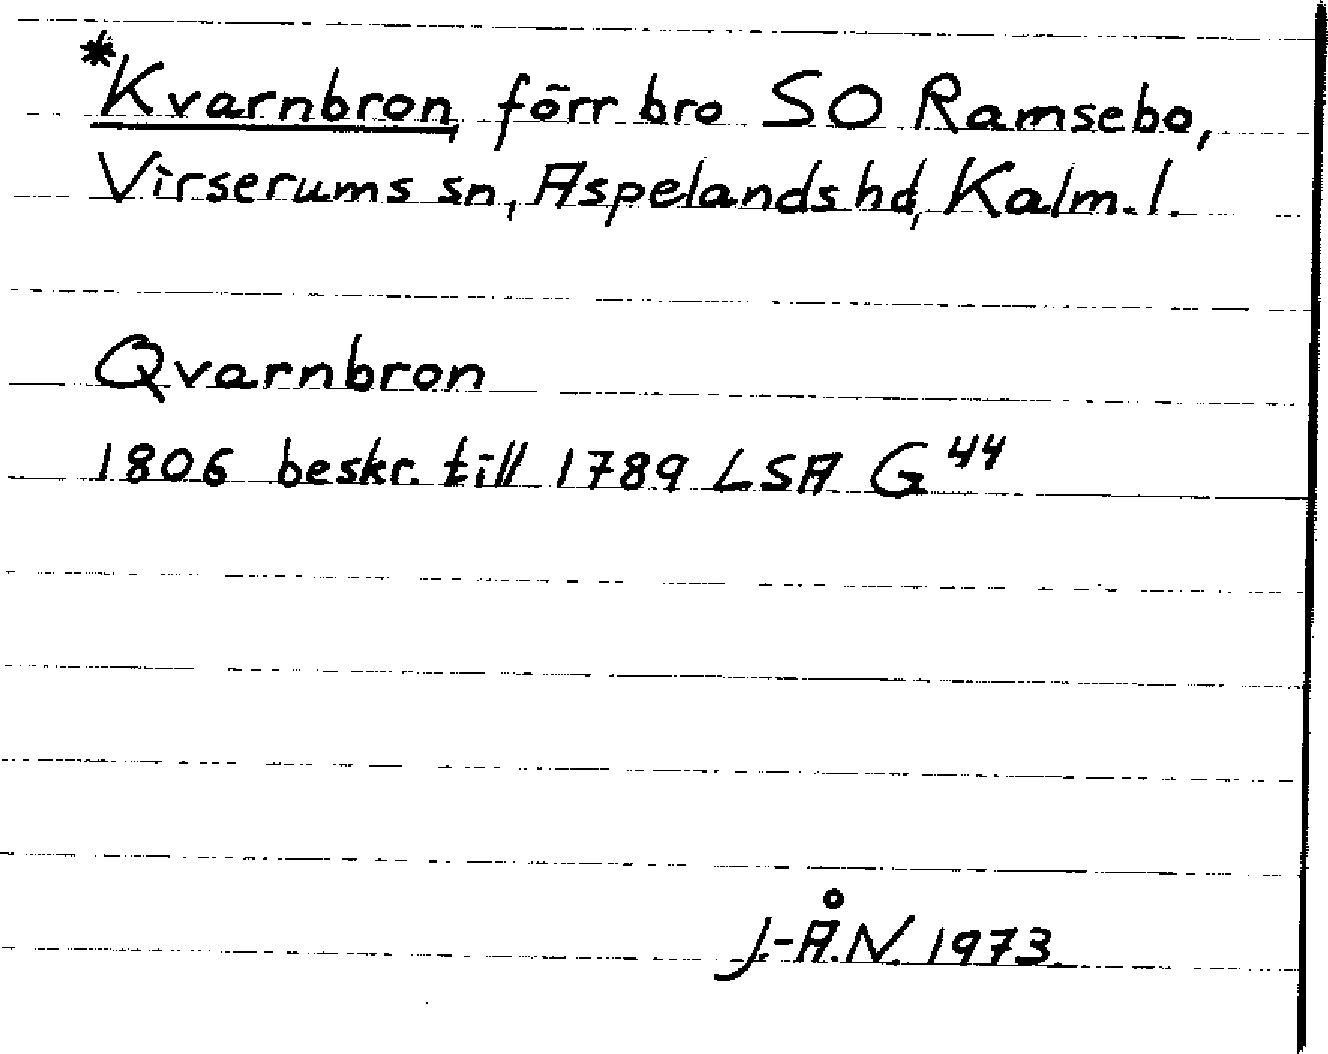 *Kvarnbron, förr bro SO Ramsebo,
Virserums sn, Aspelands hd, Kalm. l.
Qvarnbron
1806 beskr. till 1789 LSA G 44
J.-Å.N. 1973.